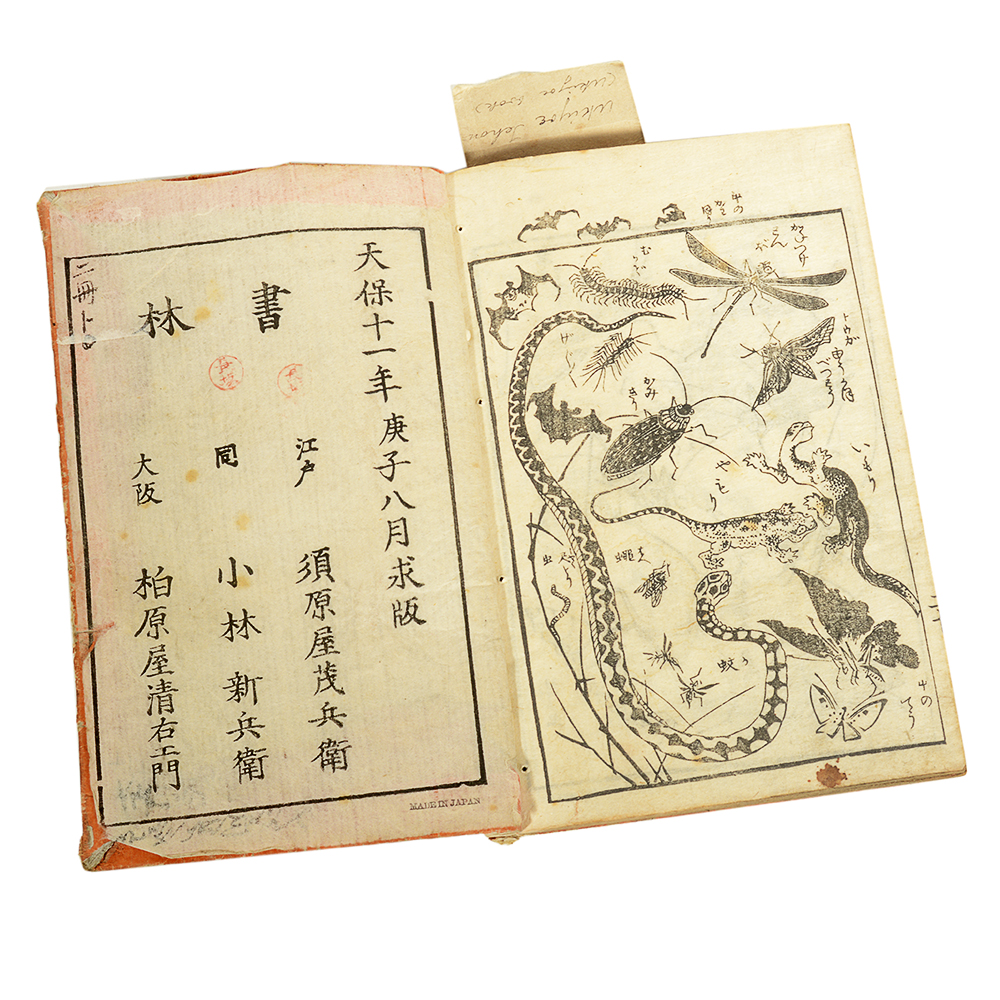 Ukiyoe Tehon
(Ukiyoe book)
天保十一年庚子八月求版
書林
江戸 須原屋茂兵衛
同 小林新兵衛
大阪 柏原屋清右エ門
二冊ト
MADE IN JAPAN
むかで
とんぼ
げじ
かみきり
いもり
やもり
蠅
蚊
虫